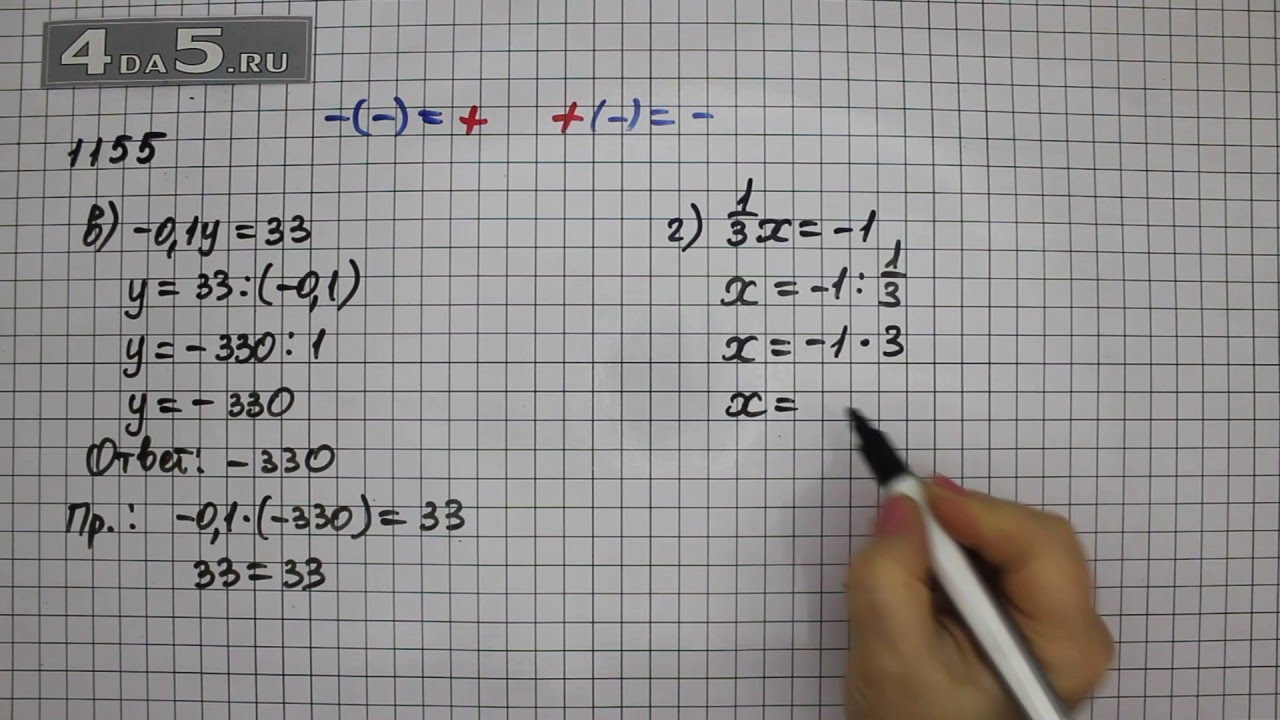 4DA5.RU
-(-) = + +(-) = -
1155
в) -0,1y = 33
y = 33 : (-0,1)
y = - 330 : 1
y = - 330
Ответ: - 330
Пр.: -0,1 · (-330) = 33
33 = 33
г) 1/3 x = -1
x = -1 : 1/3
x = -1 · 3
x =